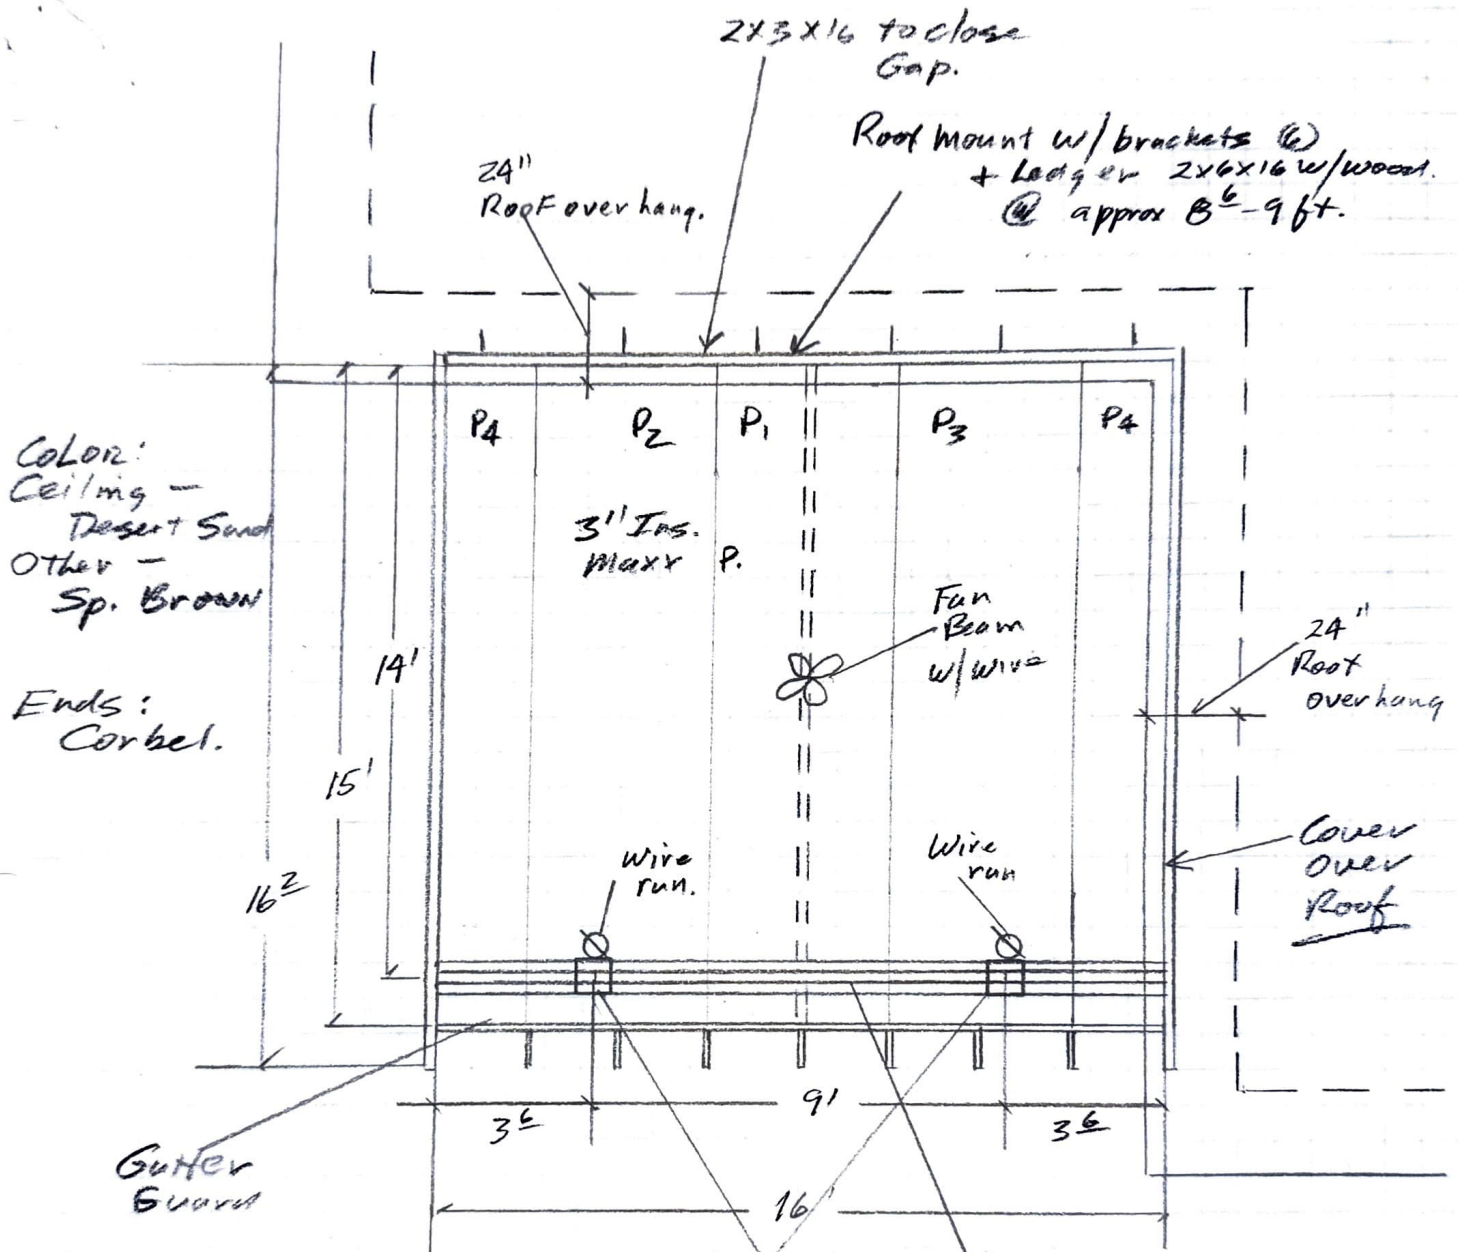 2x3x16 to close
Gap.
Roof mount w/ brackets (6)
+ Ledger 2x6x16 w/wood.
@ approx 8 6 - 9 ft.
24"
Roof overhang.
P4
P2
P1
P3
P4
Color:
Ceiling -
Desert Sand
Other -
Sp. Brown
3" Ins.
Maxx P.
Fan
Beam
w/ wire
24"
Roof
overhang
14'
Ends:
Corbel.
15'
Cover
over
Roof
wire
run.
Wire
run
16 2
3 6
9'
3 6
Gutter
Guard
16'